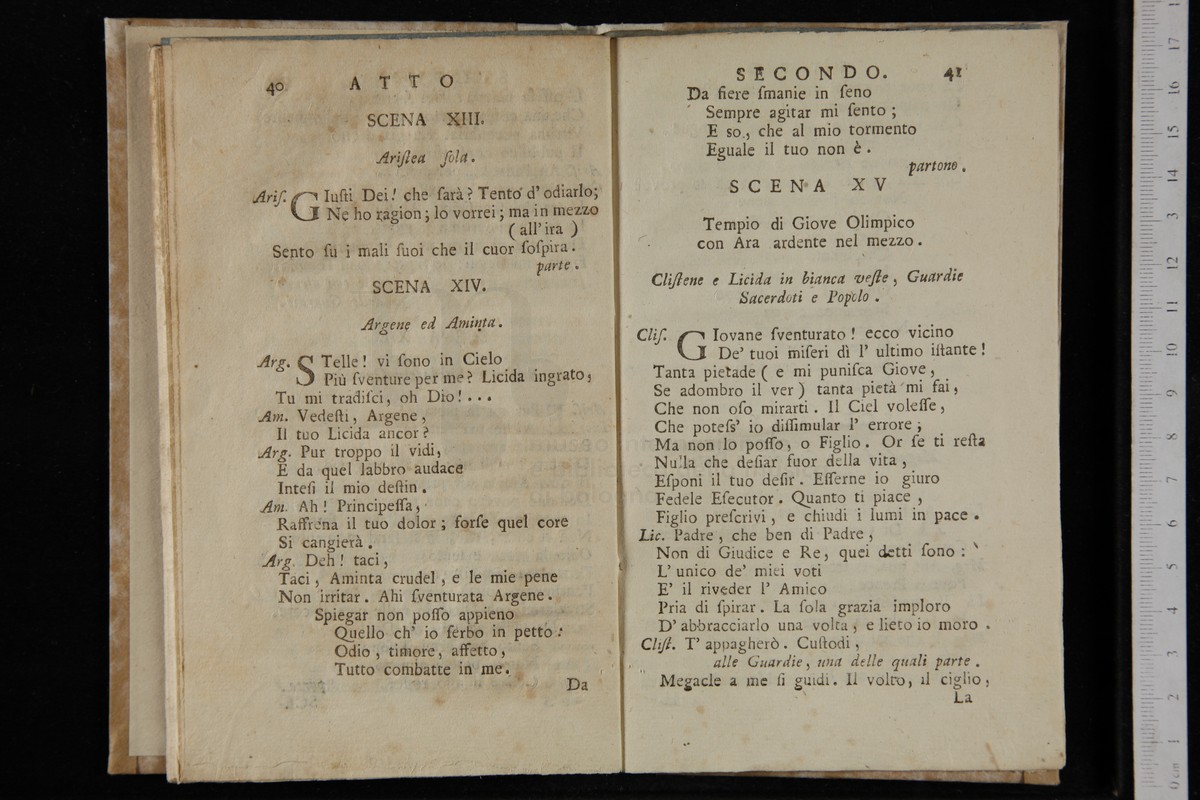 40 ATTO
SCENA XIII.
Ariſtea ſola.
Ariſ. GIuſti Dei! che ſarà? Tentò d' odiarlo;
Ne ho ragion; lo vorrei; ma in mezzo
( all' ira )
Sento ſu i mali ſuoi che il cuor ſoſpira.
parte.
SCENA XIV.
Argene ed Aminta.
Arg. STelle! vi ſono in Cielo
Più ſventure per me? Licida ingrato,
Tu mi tradiſci, oh Dio!...
Am. Vedeſti, Argene,
Il tuo Licida ancor?
Arg. Pur troppo il vidi,
E da quel labbro audace
Inteſi il mio deſtin.
Am. Ah! Principeſſa,
Raffrena il tuo dolor; forſe quel core
Si cangierà.
Arg. Deh! taci,
Taci, Aminta crudel, e le mie pene
Non irritar. Ahi ſventurata Argene.
Spiegar non poſſo appieno
Quello ch' io ſerbo in petto:
Odio, timore, affetto,
Tutto combatte in me.
Da
SECONDO. 41
Da fiere ſmanie in ſeno
Sempre agitar mi ſento;
E so, che al mio tormento
Eguale il tuo non è.
partono.
SCENA XV
Tempio di Giove Olimpico
con Ara ardente nel mezzo.
Cliſtene e Licida in bianca veſte, Guardie
Sacerdoti e Popolo.
Cliſ. GIovane ſventurato! ecco vicino
De' tuoi miſeri dì l' ultimo iſtante!
Tanta pietade ( e mi puniſca Giove,
Se adombro il ver ) tanta pietà mi fai,
Che non oſo mirarti. Il Ciel voleſſe,
Che poteſs' io diſſimular l' errore;
Ma non lo poſſo, o Figlio. Or ſe ti reſta
Nulla che deſiar fuor della vita,
Eſponi il tuo deſir. Eſſerne io giuro
Fedele Eſecutor. Quanto ti piace,
Figlio preſcrivi, e chiudi i lumi in pace.
Lic. Padre, che ben di Padre,
Non di Giudice e Re, quei detti ſono:
L' unico de' miei voti
E' il riveder l' Amico
Pria di ſpirar. La ſola grazia imploro
D' abbracciarlo una volta, e lieto io moro.
Cliſt. T' appagherò. Cuſtodi,
alle Guardie, una delle quali parte.
Megacle a me ſi guidi. Il volto, il ciglio,
La